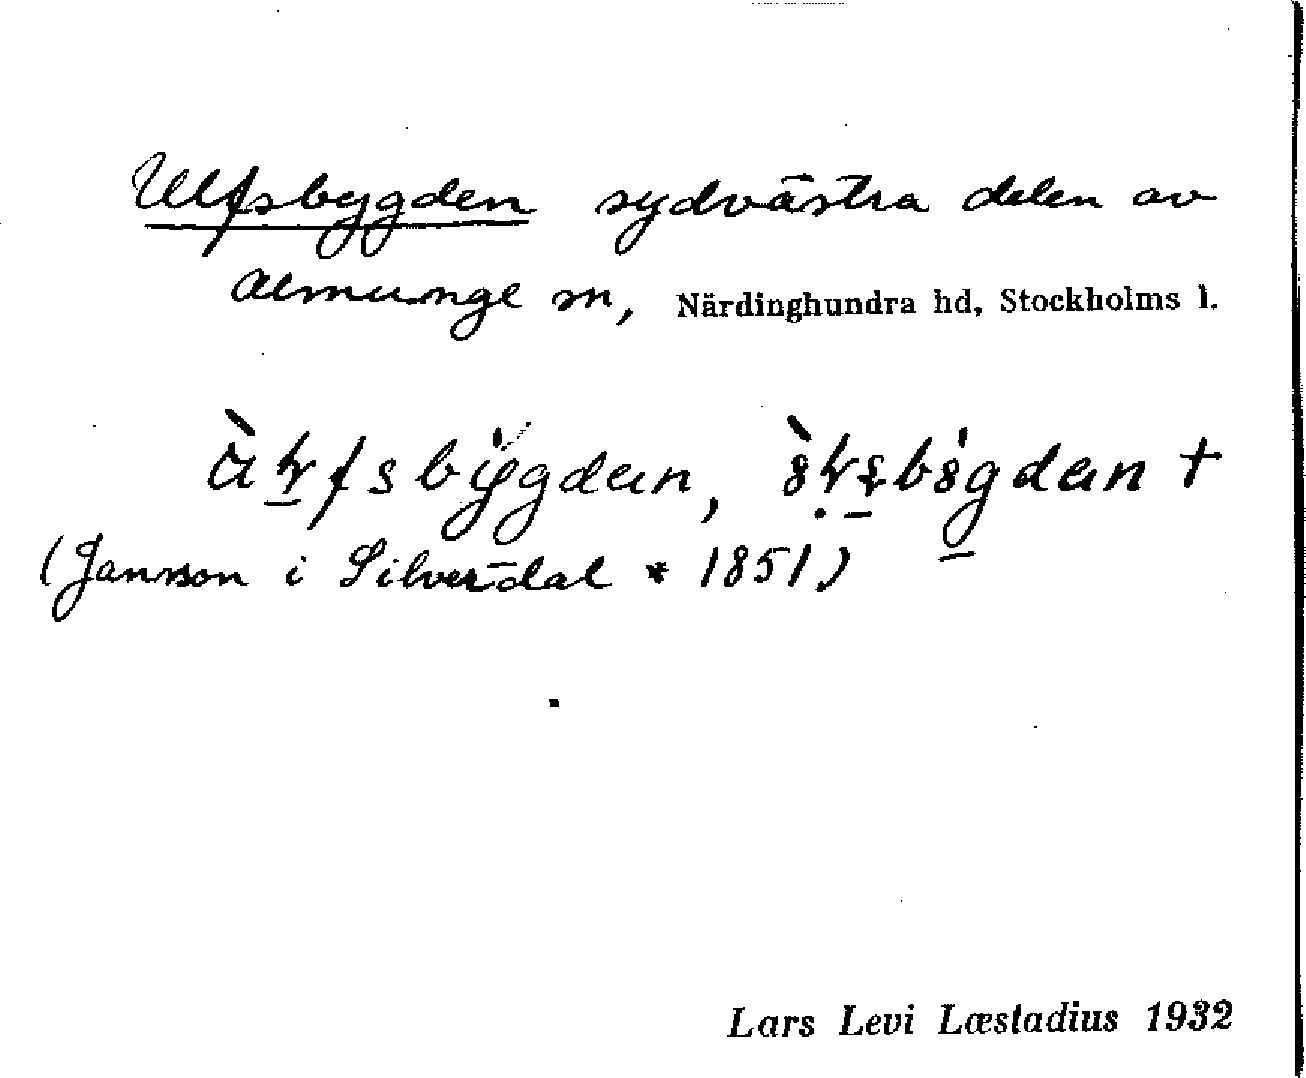 Ulfsbygden sydvästra delen av
Almunge sn, Närdinghundra hd, Stockholms l.
(Jansson i Silverdal * 1851)
Lars Levi Læstadius 1932